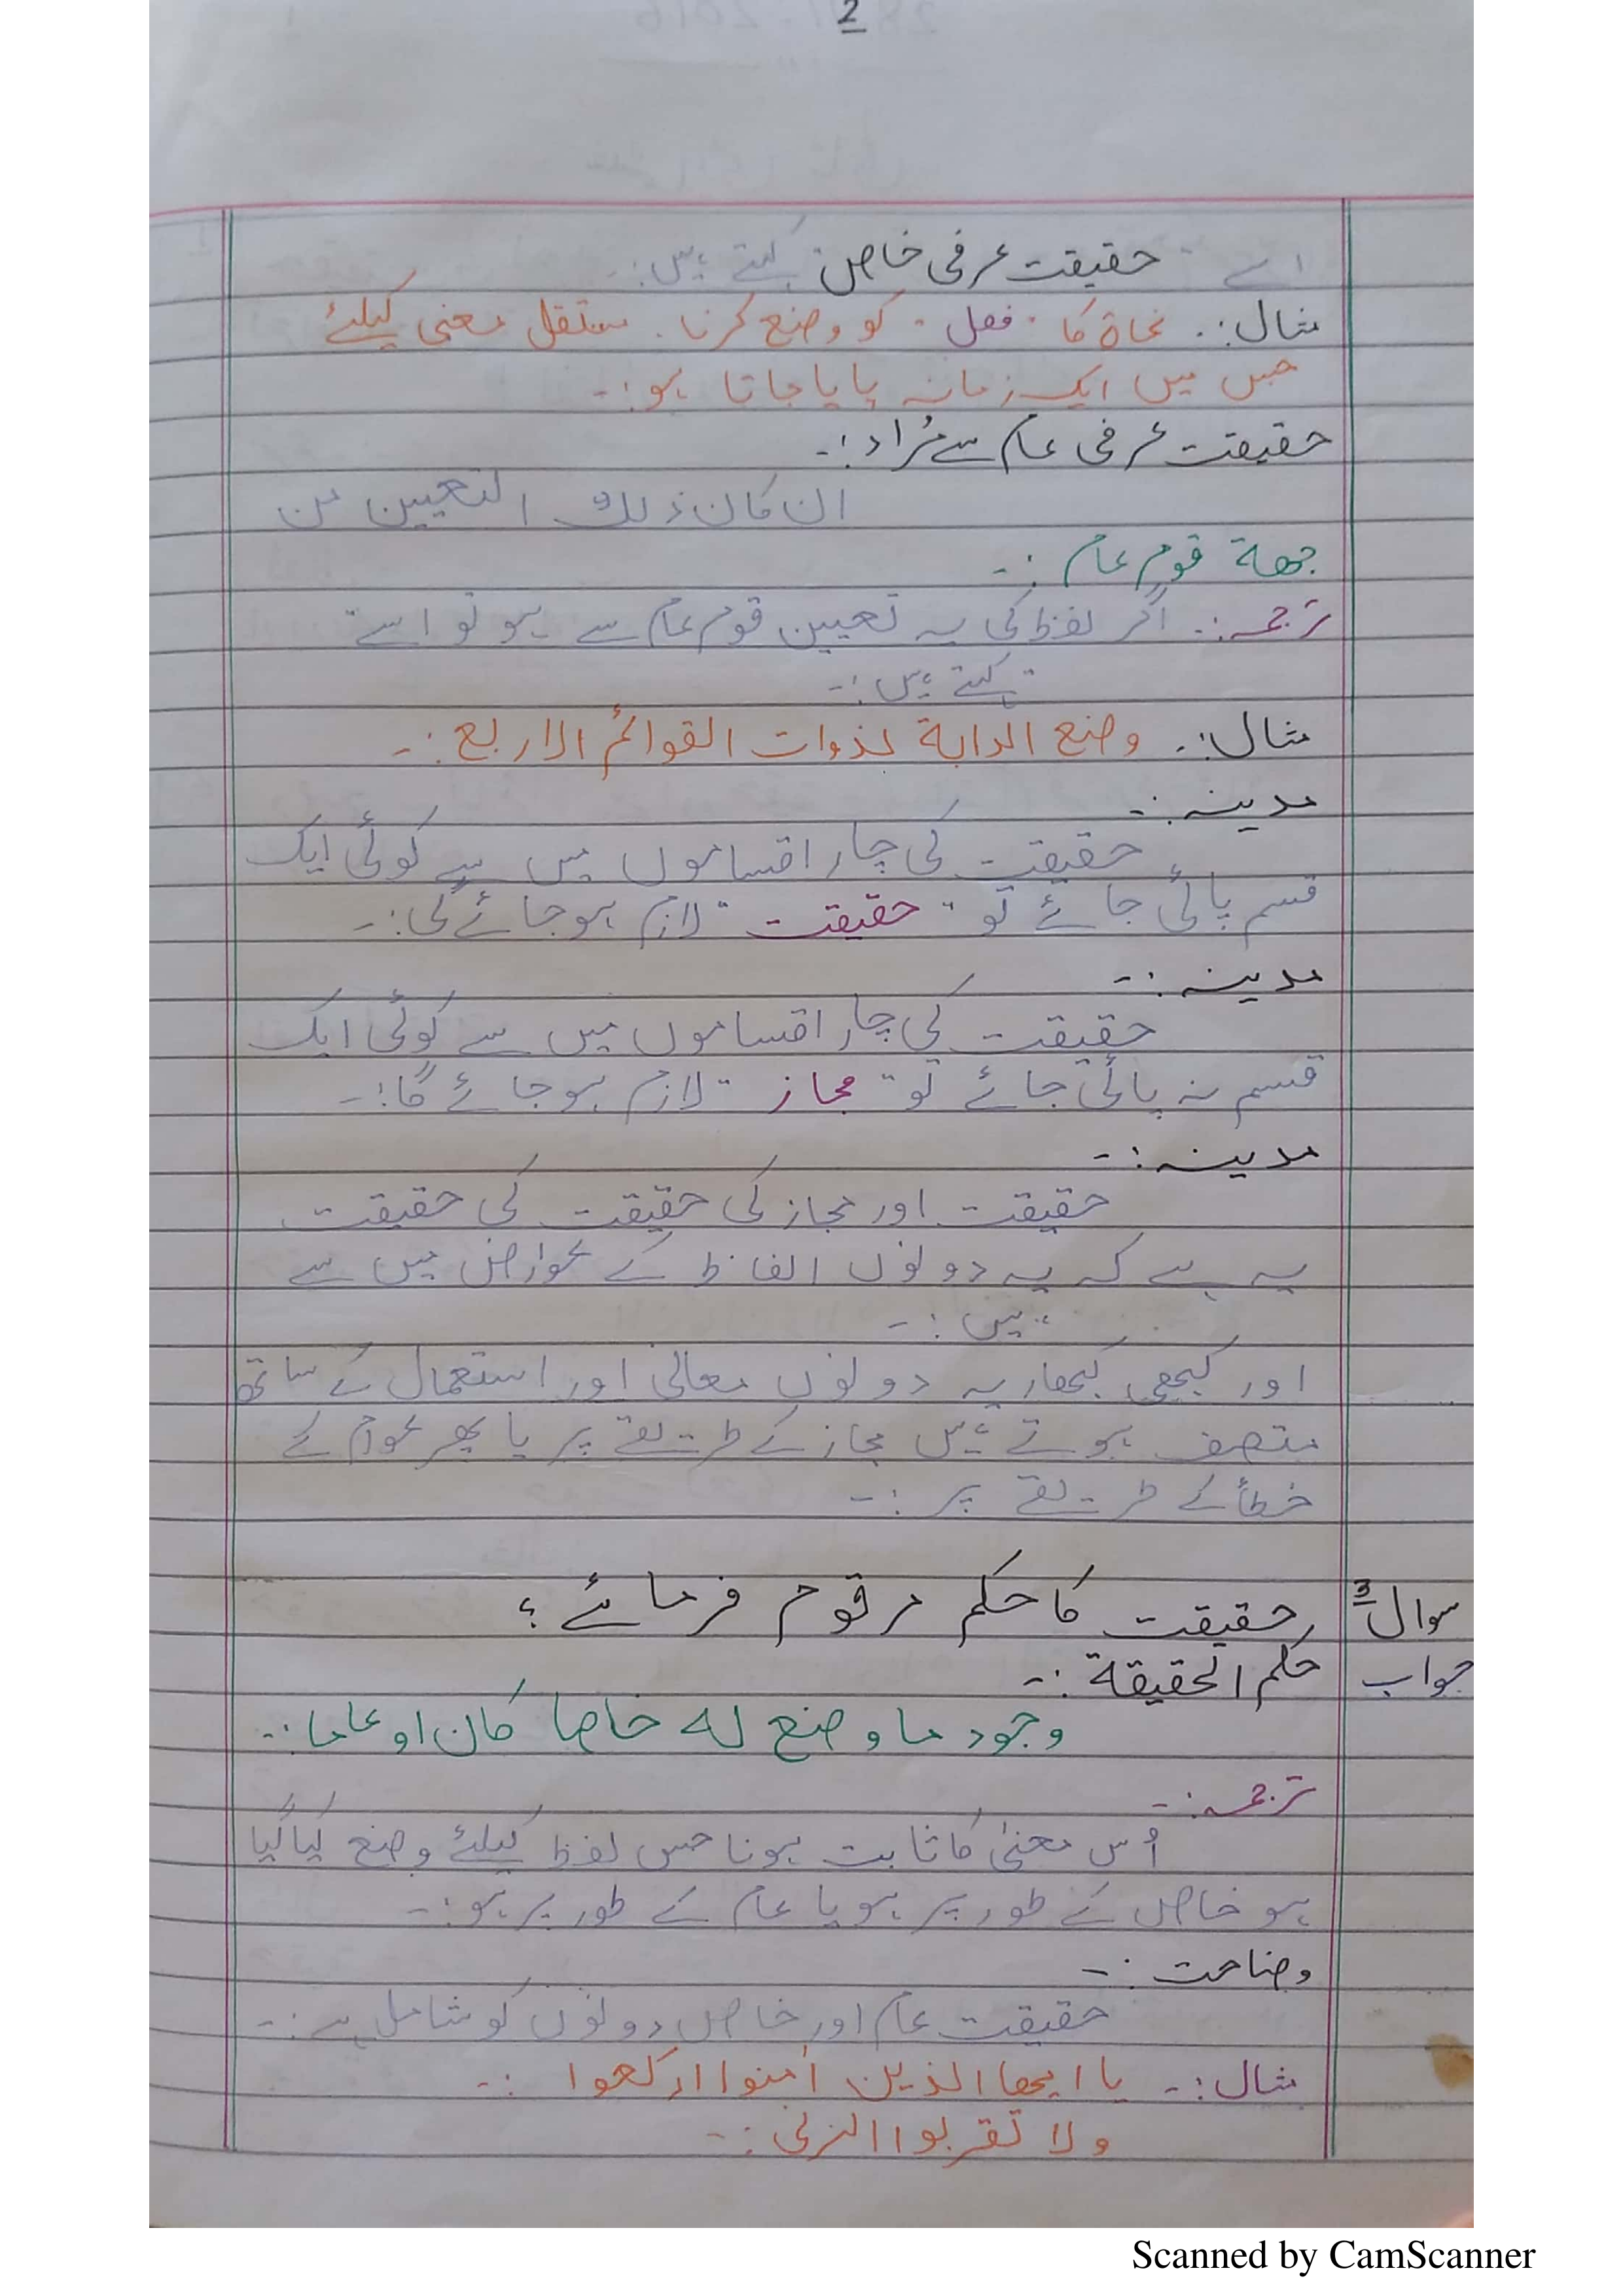 2
اسے "حقیقت عرفی خاص" کہتے ہیں:۔
مثال:۔ نحاۃ کا "فعل" کو وضع کرنا۔ مستقل معنی کیلئے
جس میں ایک زمانہ پایا جاتا ہو:۔
حقیقت عرفی عام سے مُراد:۔
ان کان ذلک التعیین من
جھة قوم عام:۔
ترجمہ:۔ اگر لفظ کی یہ تعیین قوم عام سے ہو تو اسے "
" کہتے ہیں:۔
مثال:۔ وضع الدابة لذوات القوائم الاربع:۔
مدینہ:۔
حقیقت کی چار اقساموں میں سے کوئی ایک
قسم پائی جائے تو "حقیقت" لازم ہوجائے گی:۔
مدینہ:۔
حقیقت کی چار اقساموں میں سے کوئی ایک
قسم نہ پائی جائے تو "مجاز" لازم ہوجائے گا:۔
مدینہ:۔
حقیقت اور مجاز کی حقیقت کی حقیقت
یہ ہے کہ یہ دونوں الفاظ کے عوارض میں سے
ہیں:۔
اور کبھی کبھار یہ دونوں معانی اور استعمال کے ساتھ
متصف ہوتے ہیں مجاز کے طریقے پر یا پھر عوام کے
خطأ کے طریقے پر:۔
سوال 3 حقیقت کا حکم مرقوم فرمائے؟
جواب حکم الحقیقة:۔
وجود ما وضع له خاصا کان او عاما:۔
ترجمہ:۔
اُس معنیٰ کا ثابت ہونا جس لفظ کیلئے وضع کیا گیا
ہو خاص کے طور پر ہو یا عام کے طور پر ہو:۔
وضاحت:۔
حقیقت عام اور خاص دونوں کو شامل ہے:۔
مثال:۔ یا ایھا الذین اٰمنوا ارکعوا:۔
ولا تقربوا الزنی:۔
Scanned by CamScanner